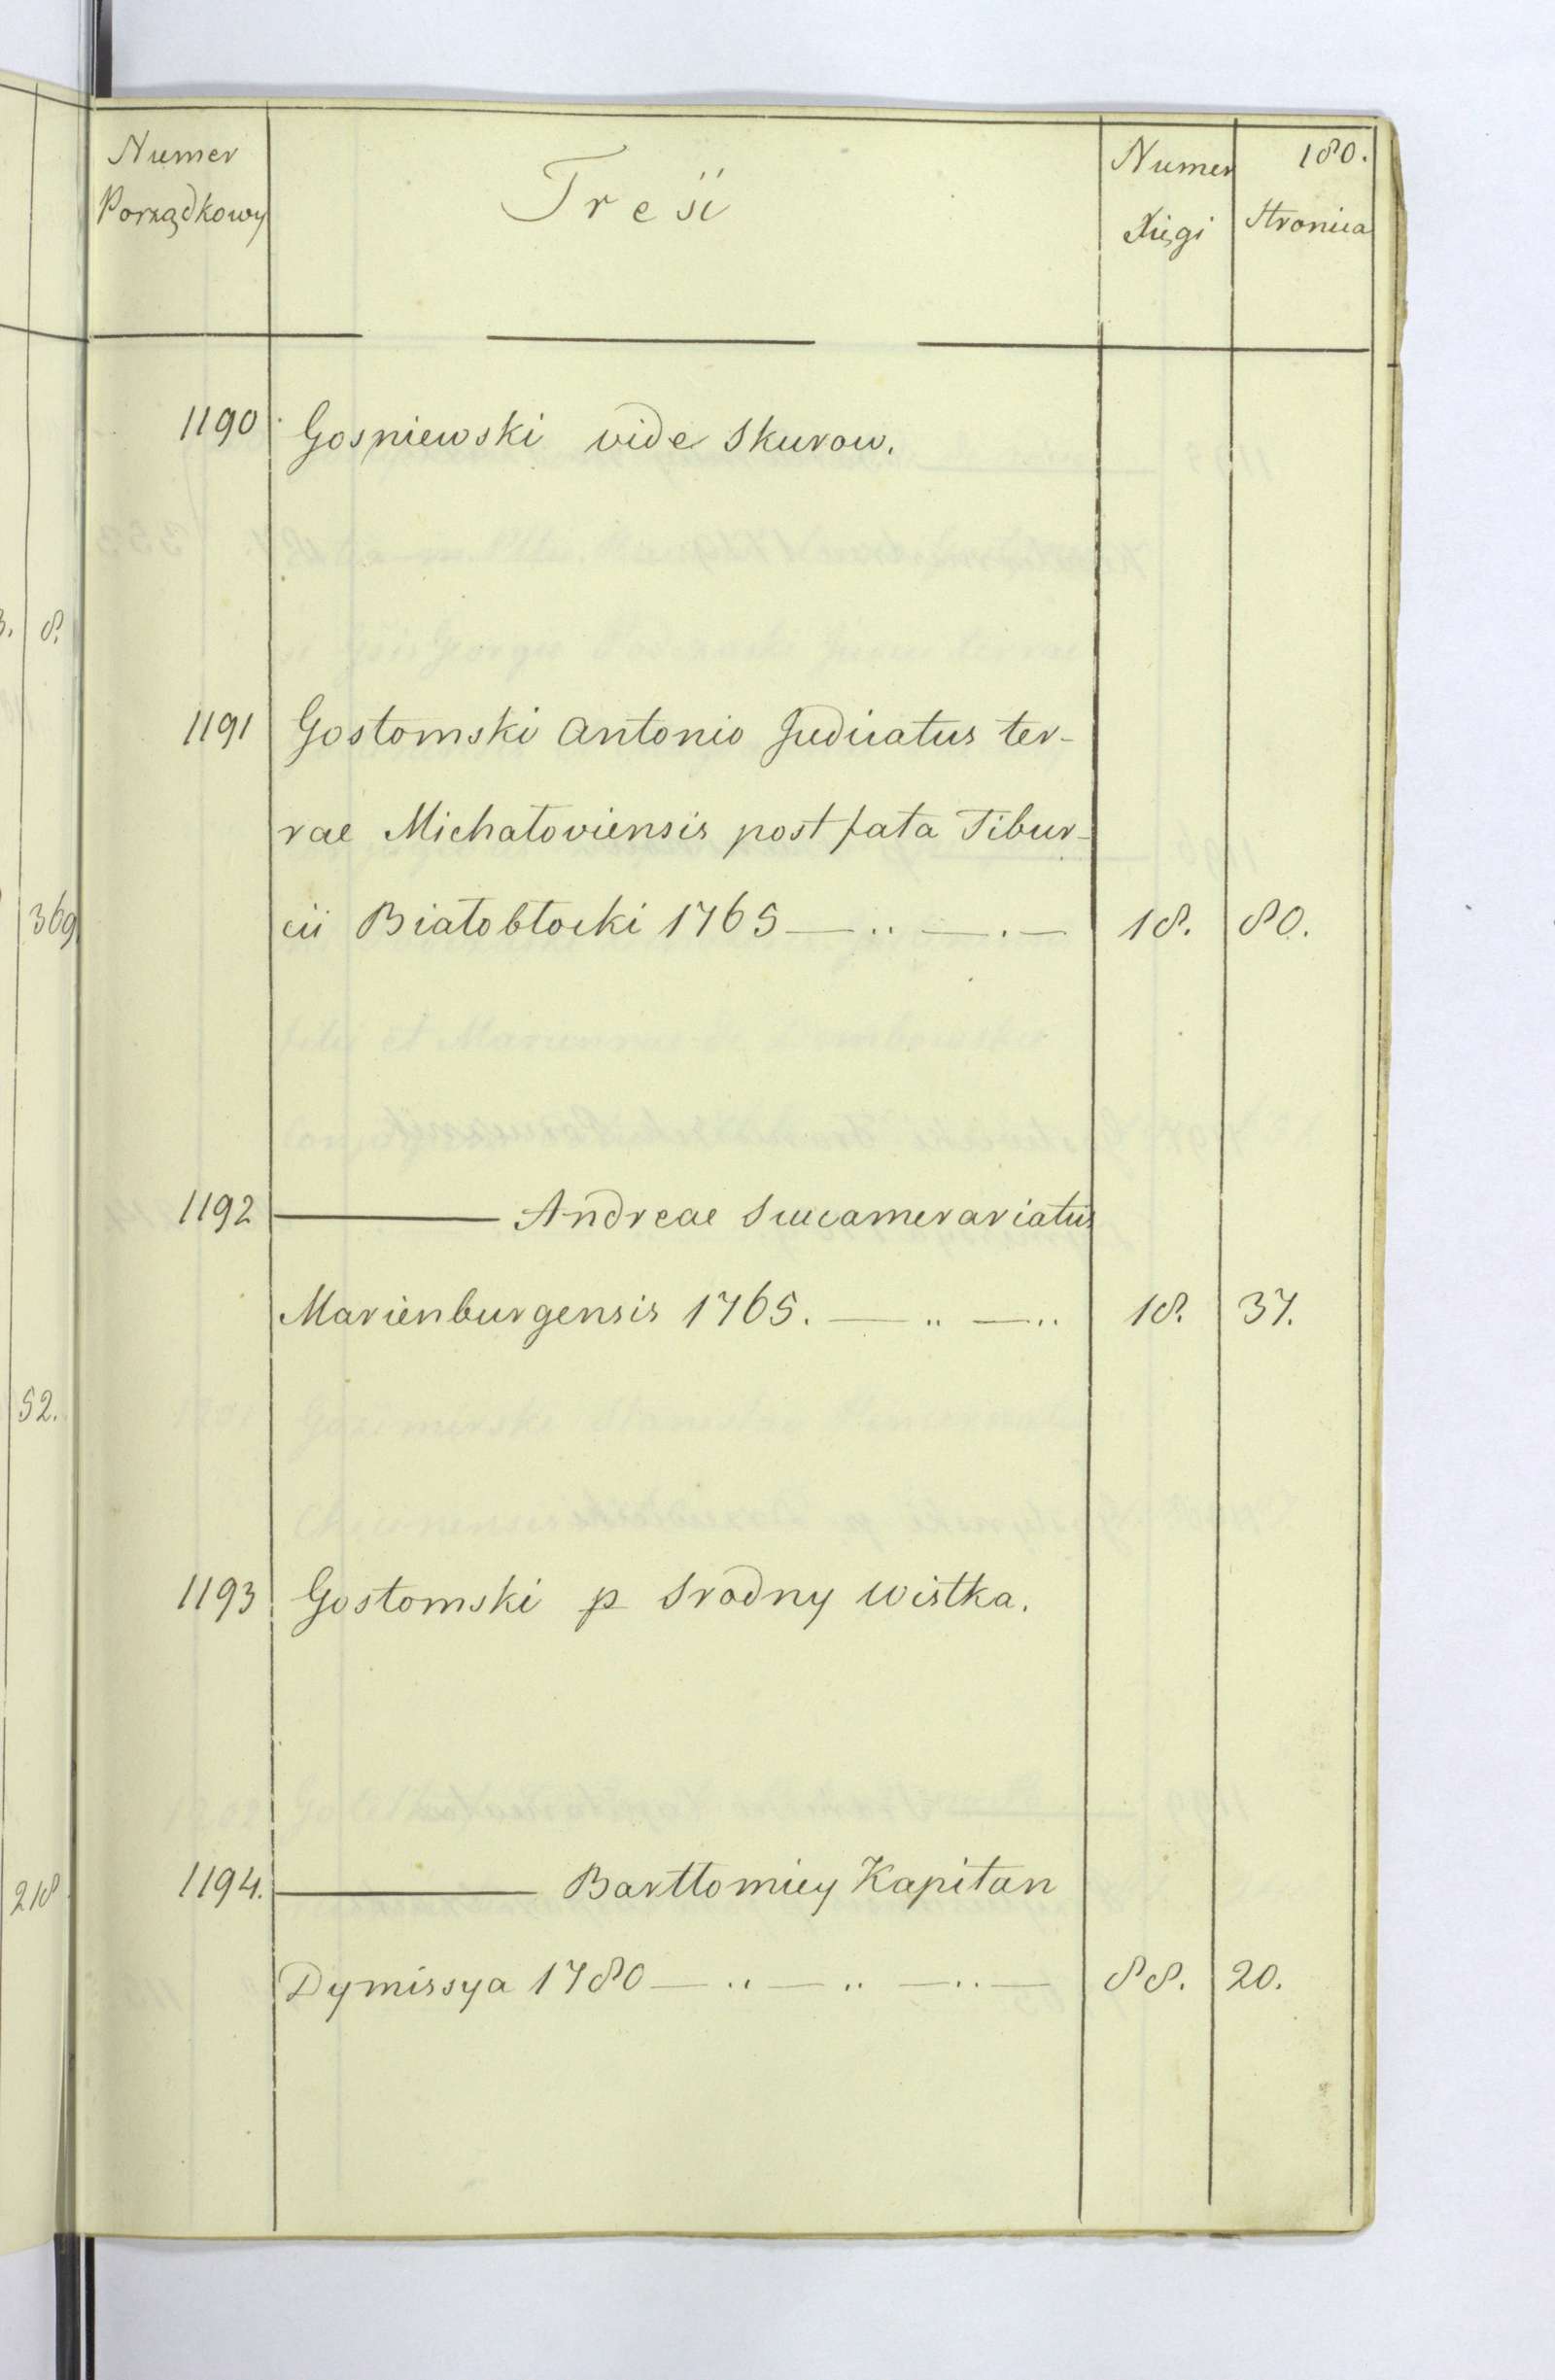 180.
Numer Porządkowy
Treść
Numer Xięgi
Stronica
1190 Gosniewski vide Skurow.
1191 Gostomski Antonio Judicatus ter-
rae Michałoviensis post fata Tibur-
cii Białobłocki 1765 — .. — . — 18. 80.
1192 ——— Andreae Succamerariatus
Marienburgensis 1765. — .. — .. 18. 37.
1193 Gostomski p Srodny Wistka.
1194. ——— Barttomiey Kapitan
Dymissya 1780 — .. — .. — .. — 88. 20.
8.
369
52.
218